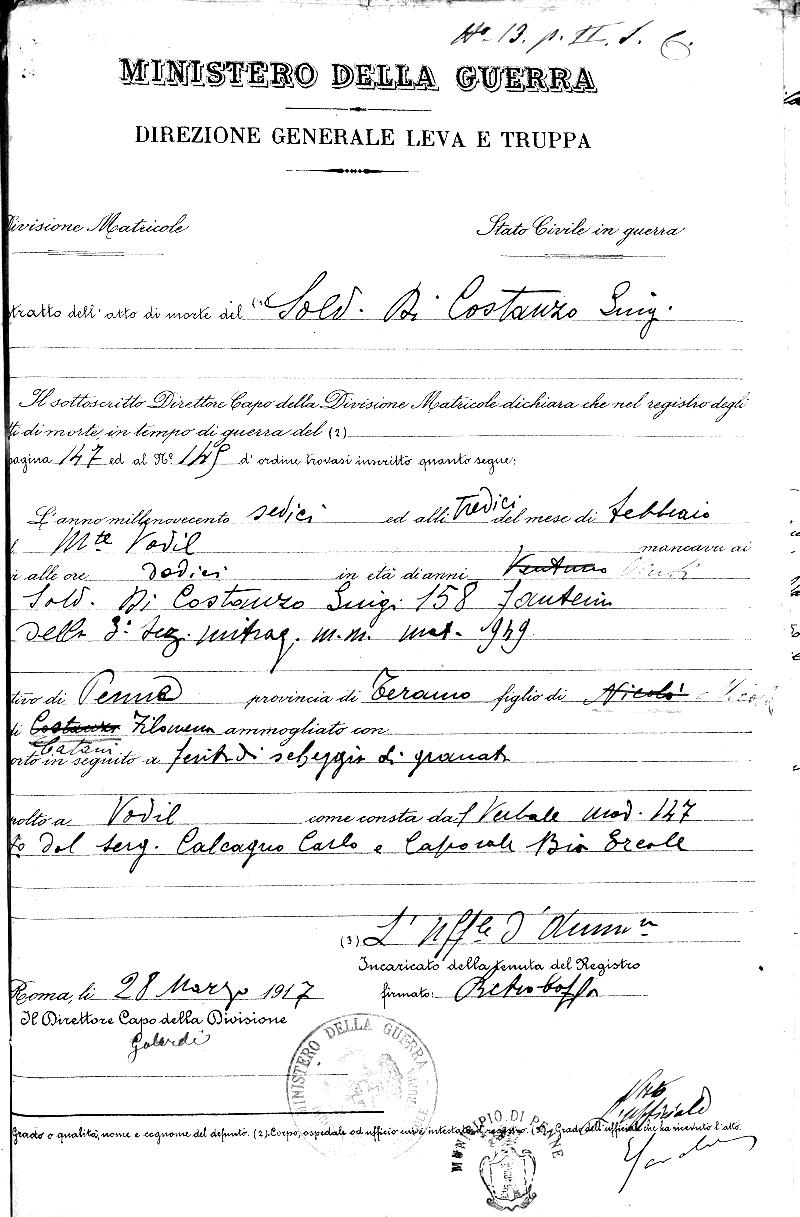 No. 13. p. II. S. C.
MINISTERO DELLA GUERRA
DIREZIONE GENERALE LEVA E TRUPPA
Divisione Matricole
Stato Civile in guerra
tratto dell' atto di morte del (1) Sold. Di Costanzo Luigi
Il sottoscritto Direttore Capo della Divisione Matricole dichiara che nel registro degli
tti di morte in tempo di guerra del (2)
pagina 147 ed al N.º 145 d'ordine trovasi inscritto quanto segue:
L'anno millenovecento sedici ed alli tredici del mese di febbraio
Mte Vodil mancava ai
i alle ore dodici in età di anni Ventuno
Sold. Di Costanzo Luigi 158 fanteria
della 3ª Sez. mitrag. m.m. mat. 949
tivo di Penne provincia di Teramo figlio di Nicolò Nicola
di Costanzo Filomena ammogliato con
Catani
orto in seguito a ferite di scheggia di granata
polto a Vodil come consta dal Verbale mod. 147
to dal serg. Calcagno Carlo e Caporale Bia Ercole
(3) L' Uff.le d'Ammin.
Incaricato della tenuta del Registro
Roma, li 28 Marzo 1917 firmato:
Il Direttore Capo della Divisione
MINISTERO DELLA GUERRA
Visto
L'ufficiale
Grado o qualità, nome e cognome del defunto. (2) Corpo, ospedale od ufficio cui è intestato il registro. (3) Grado dell'ufficiale che ha ricevuto l'atto.
MUNICIPIO DI PENNE